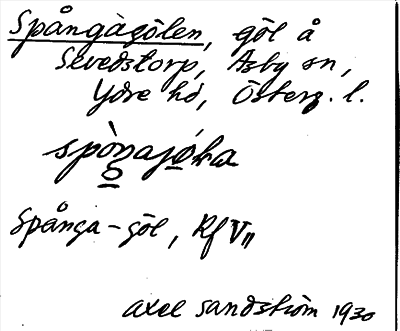 Spångagölen, göl å
Skvedstorp, Asby sn,
Ydre hd, Österg. l.
Spånga-göl, Rf V11
Axel Sandström 1930